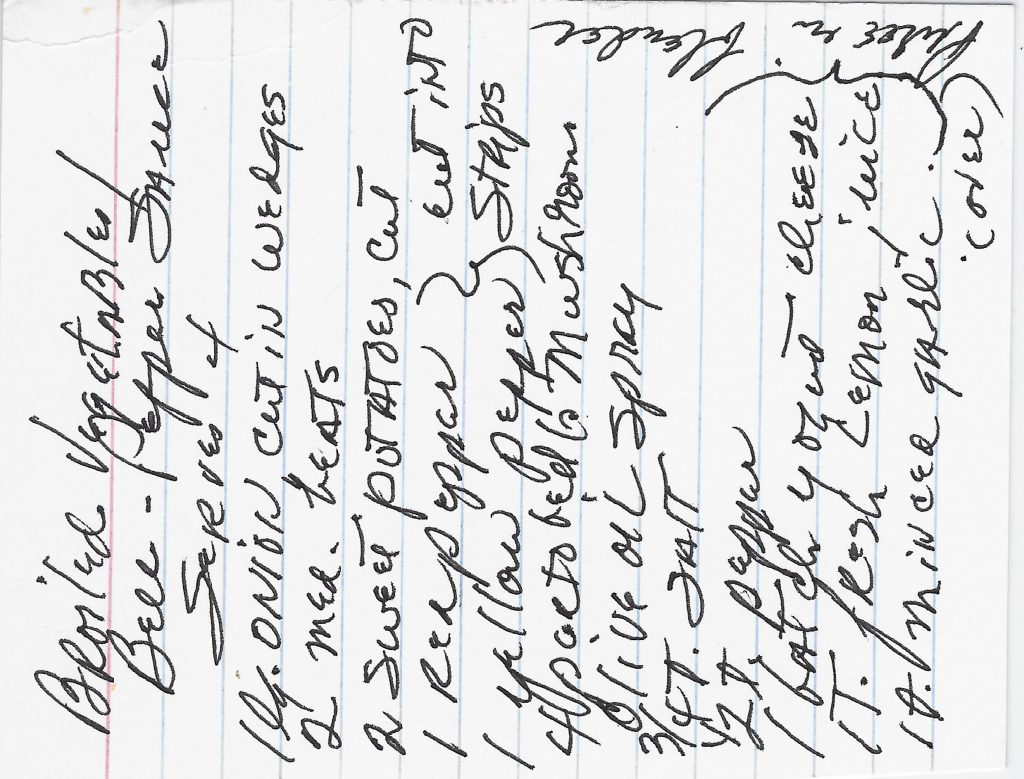 Broiled Vegetables/
Bell-Pepper Sauce
Serves 4
1 lg. onion cut in wedges
2 med. beats
2 sweet potatoes, cut
1 red pepper } cut into
1 yellow pepper } strips
4 portobello mushroom
Olive oil spray
3/4 t. salt
1/2 t. pepper
1 batch yogurt cheese
1 T. fresh lemon juice
1 t. minced garlic
} Puree in
blender
(over)